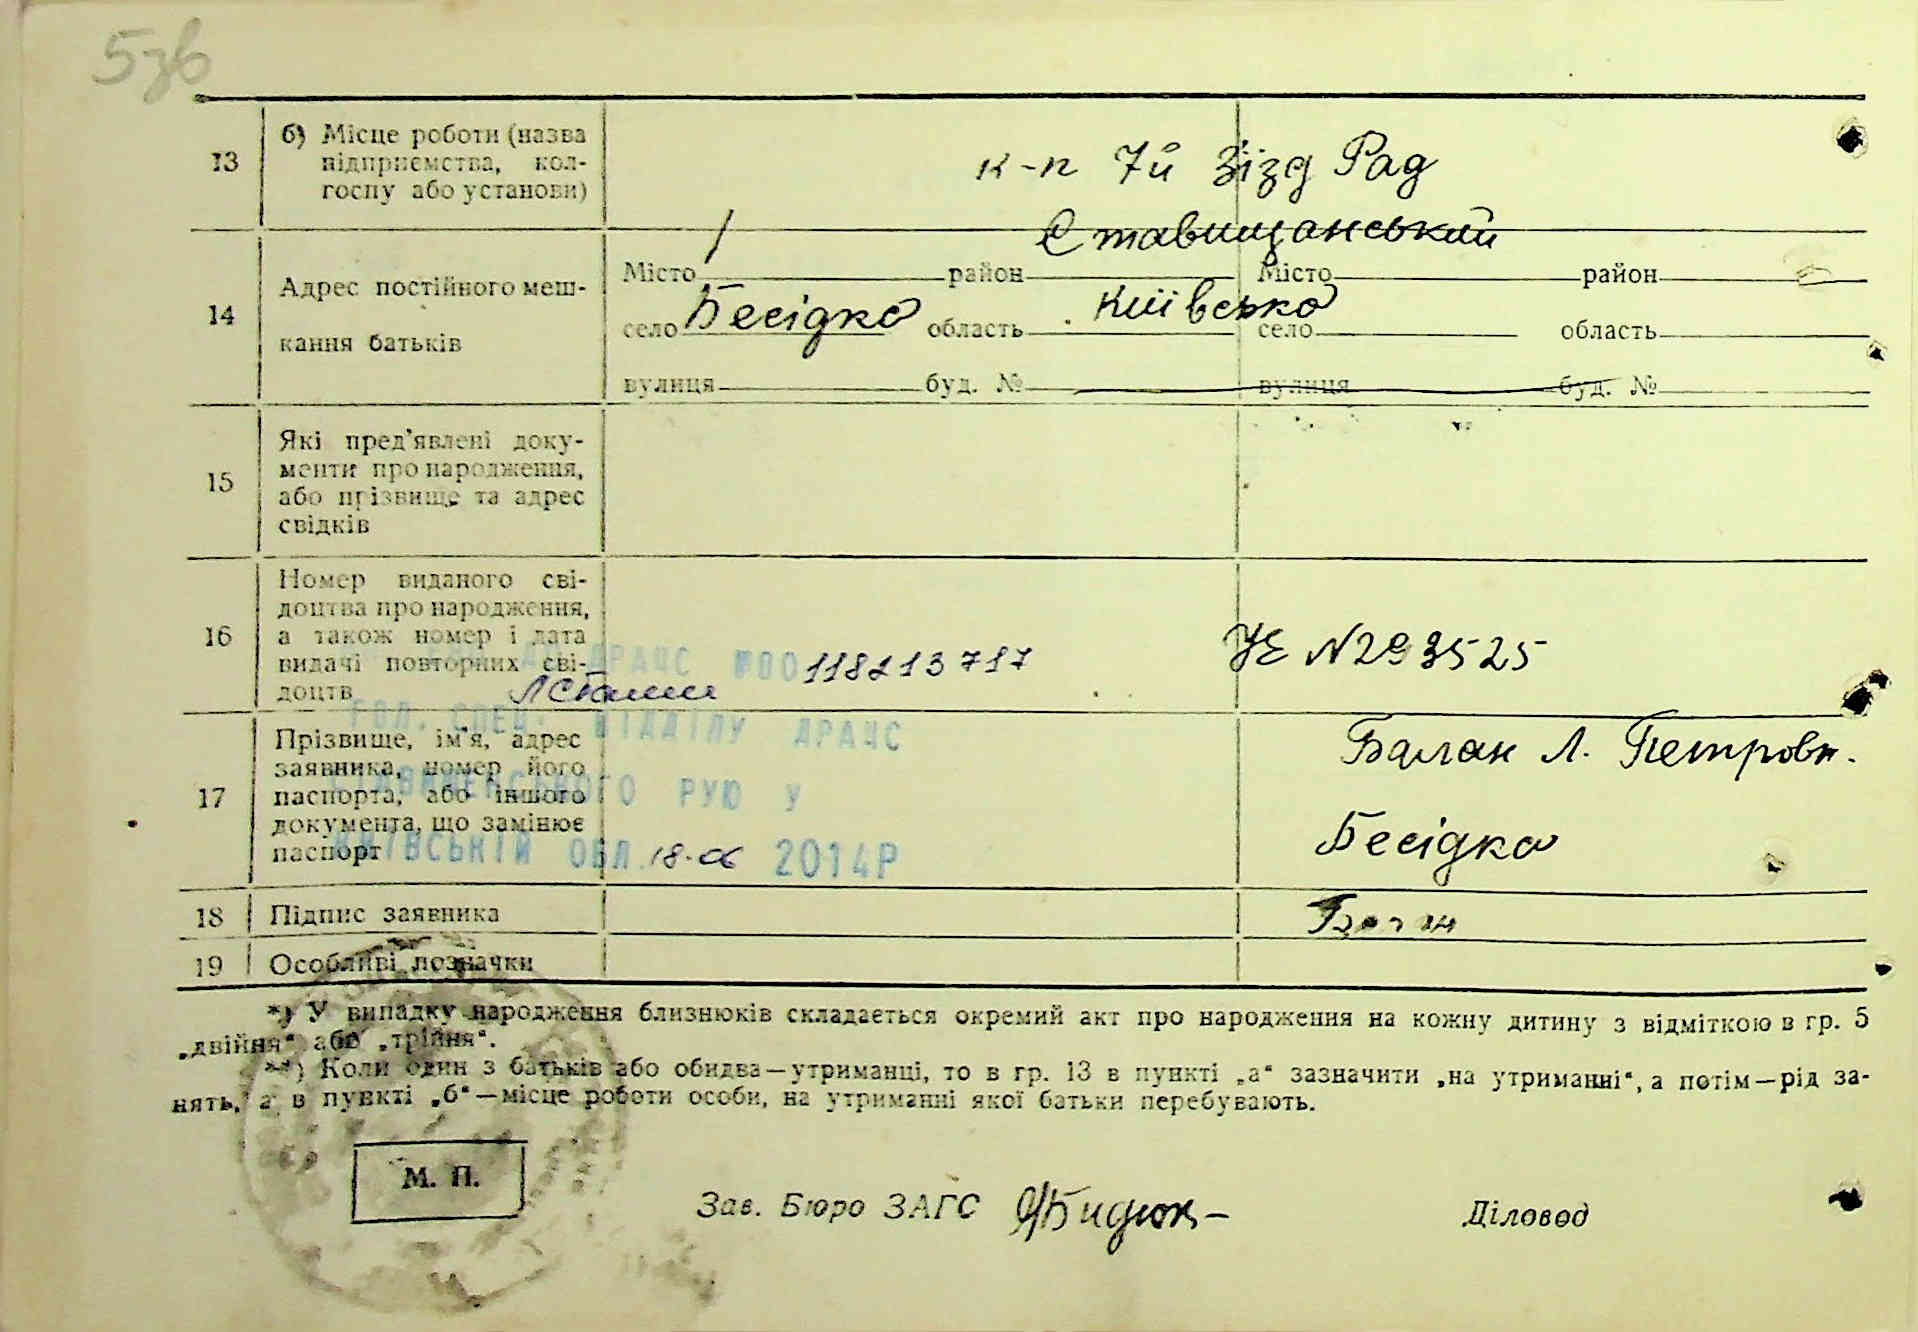 5зв
13 б) Місце роботи (назва
підприємства, кол-
госпу або установи)
к-п 7й Зізд Рад
14 Адрес постійного меш-
кання батьків
Ставищанський
Місто / район Місто район
село Бесідка область Київська село область
вулиця буд. № вулиця буд. №
15 Які пред'явлені доку-
менти про народження,
або прізвище та адрес
свідків
16 Номер виданого сві-
доцтва про народження,
а також номер і дата
видачі повторних сві-
доцтв
ДРАЧС №00118213717
УЕ N293525
ГОЛ. СПЕЦ. ВІДДІЛУ ДРАЧС
РУЮ У
КИЇВСЬКІЙ ОБЛ. 18.06 2014Р
17 Прізвище, ім'я, адрес
заявника, номер його
паспорта, або іншого
документа, що замінює
паспорт
Балан Л. Петровн.
Бесідка
18 Підпис заявника
19 Особливі позначки
*) У випадку народження близнюків складається окремий акт про народження на кожну дитину з відміткою в гр. 5
„двійня“ або „трійня“.
**) Коли один з батьків або обидва—утриманці, то в гр. 13 в пункті „а“ зазначити „на утриманні“, а потім—рід за-
нять, а в пункті „б“—місце роботи особи, на утриманні якої батьки перебувають.
М. П.
Зав. Бюро ЗАГС
Діловод